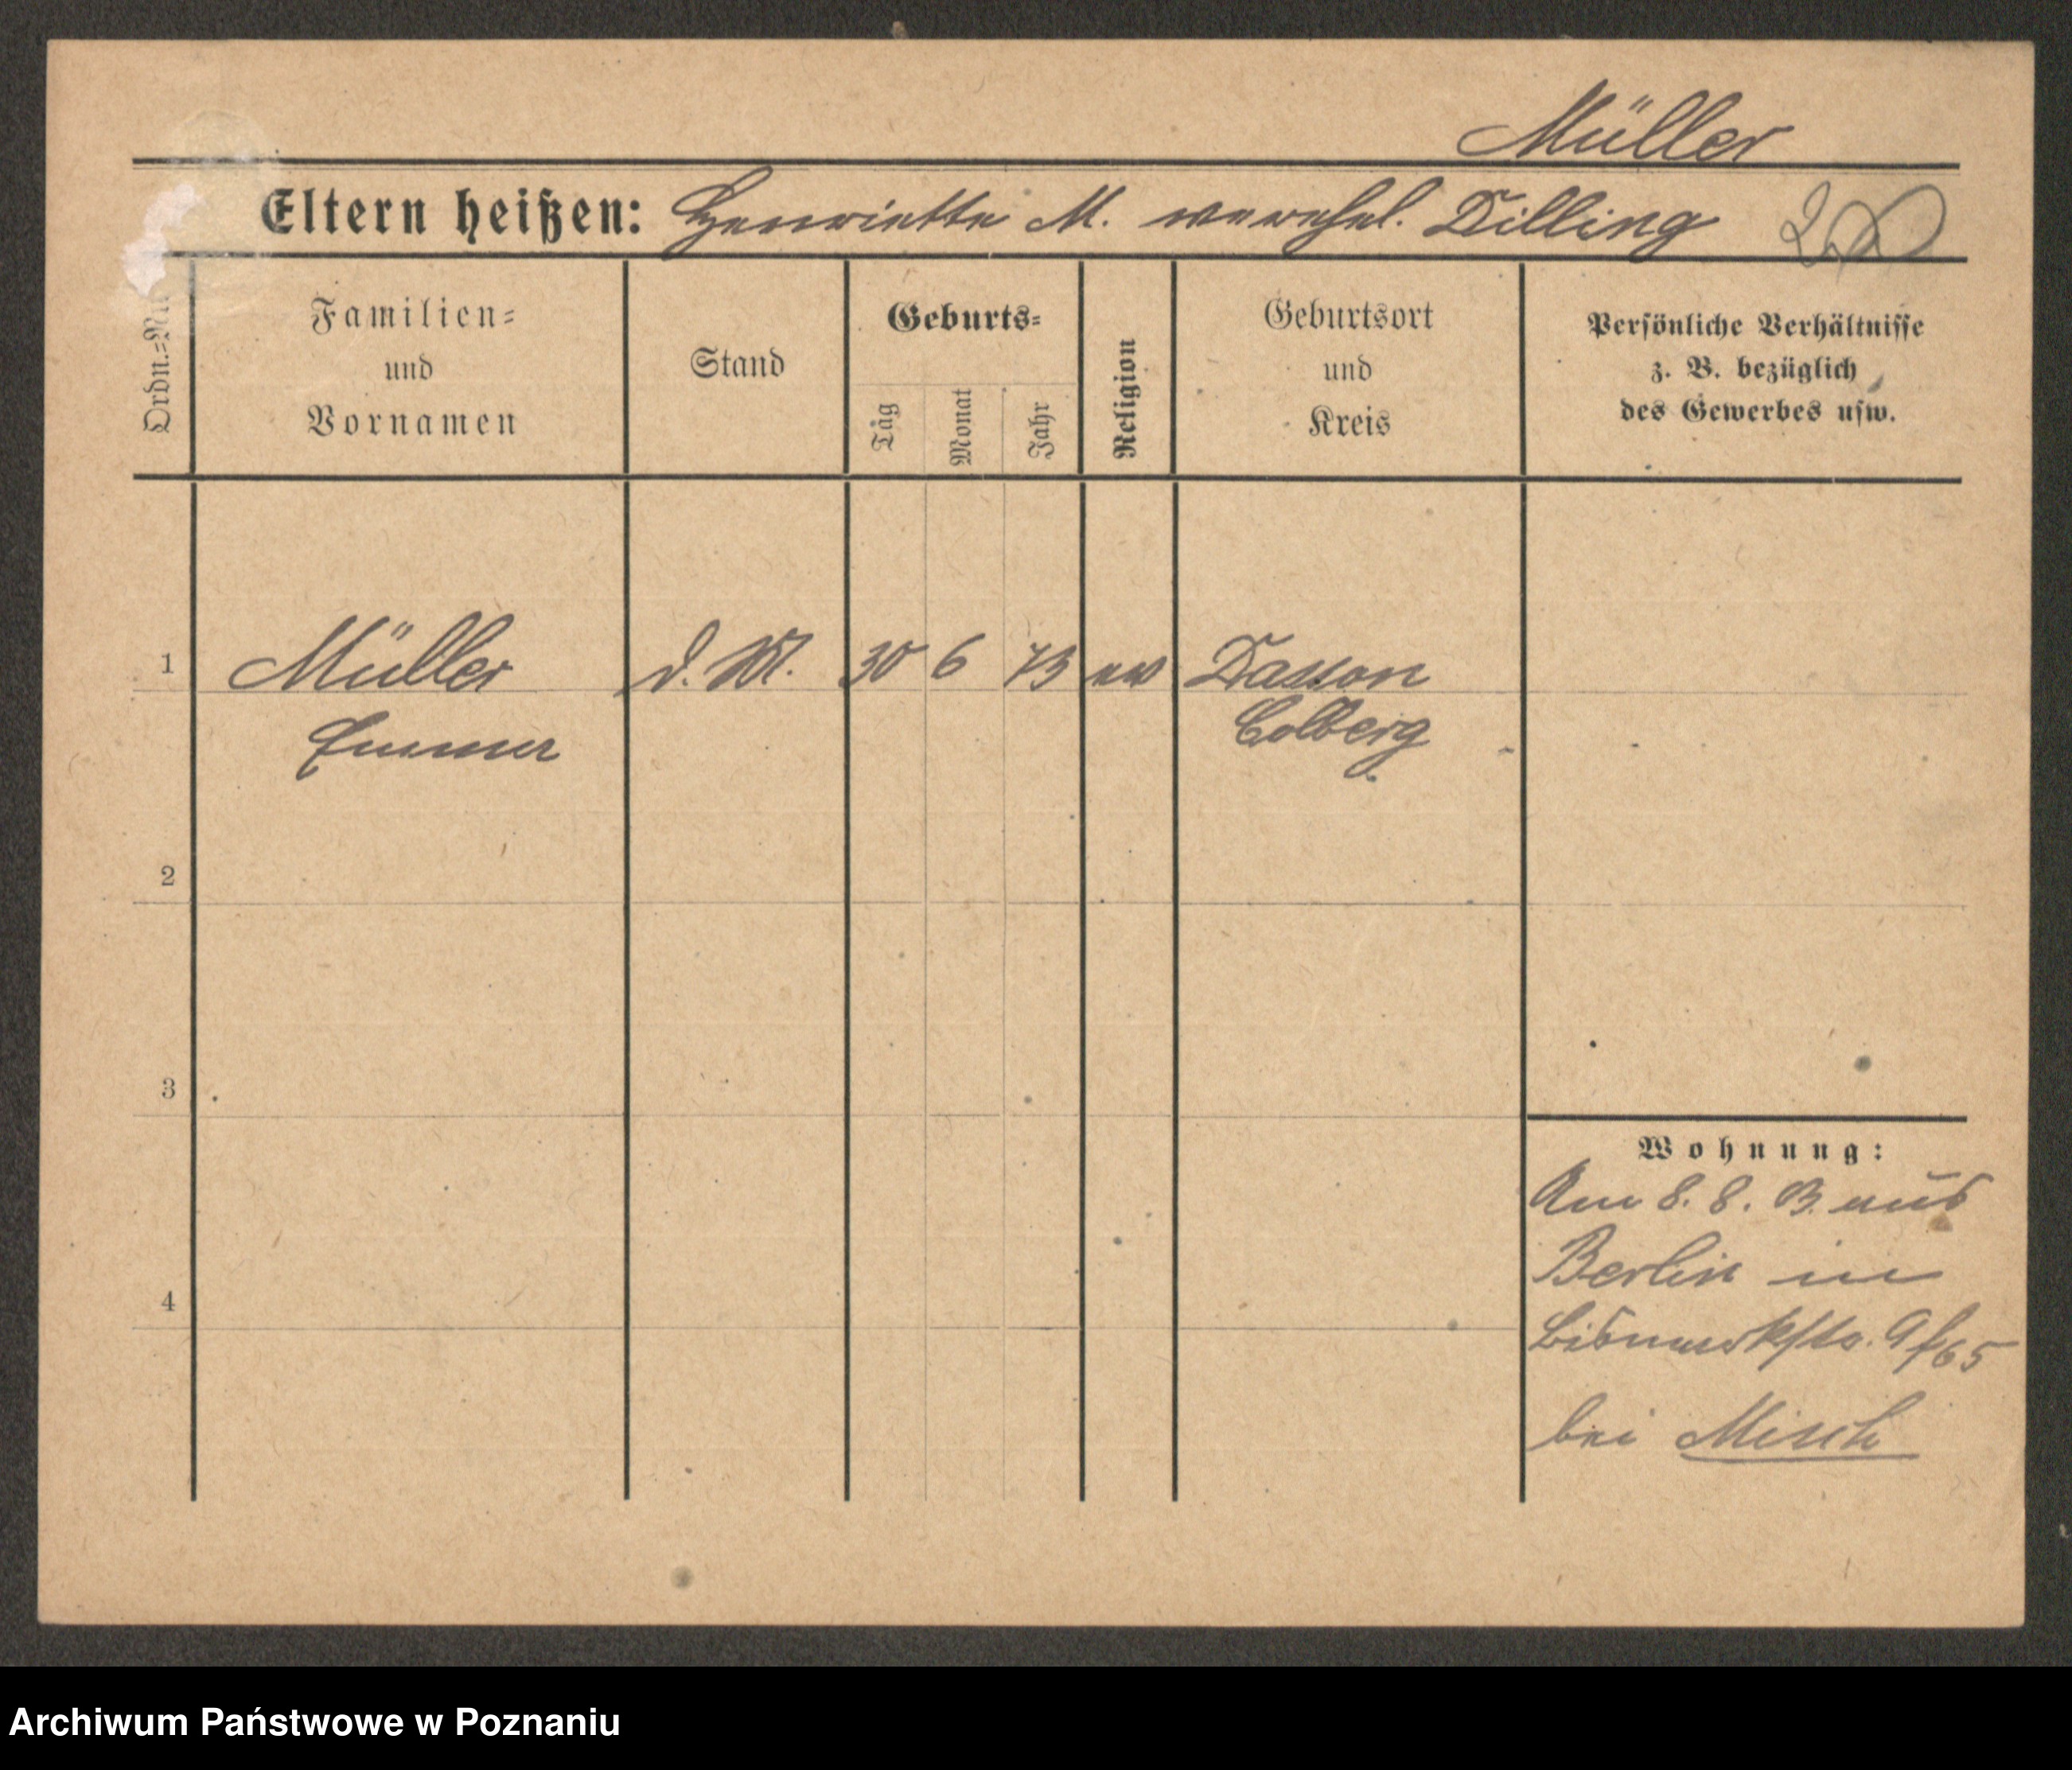 Müller
Eltern heißen: Henriette M. verehel. Dilling
Ordn.-Nr.
Familien-
und
Vornamen
Stand
Geburts-
Tag
Monat
Jahr
Religion
Geburtsort
und
Kreis
Persönliche Verhältnisse
z. B. bezüglich
des Gewerbes usw.
1 Müller d. M. 30 6 73 ev Dasson
Emma Colberg
2
3
4
Wohnung:
Am 8. 8. 13 aus
Berlin in
Bismarkstr. 9/65
bei Misch
Archiwum Państwowe w Poznaniu